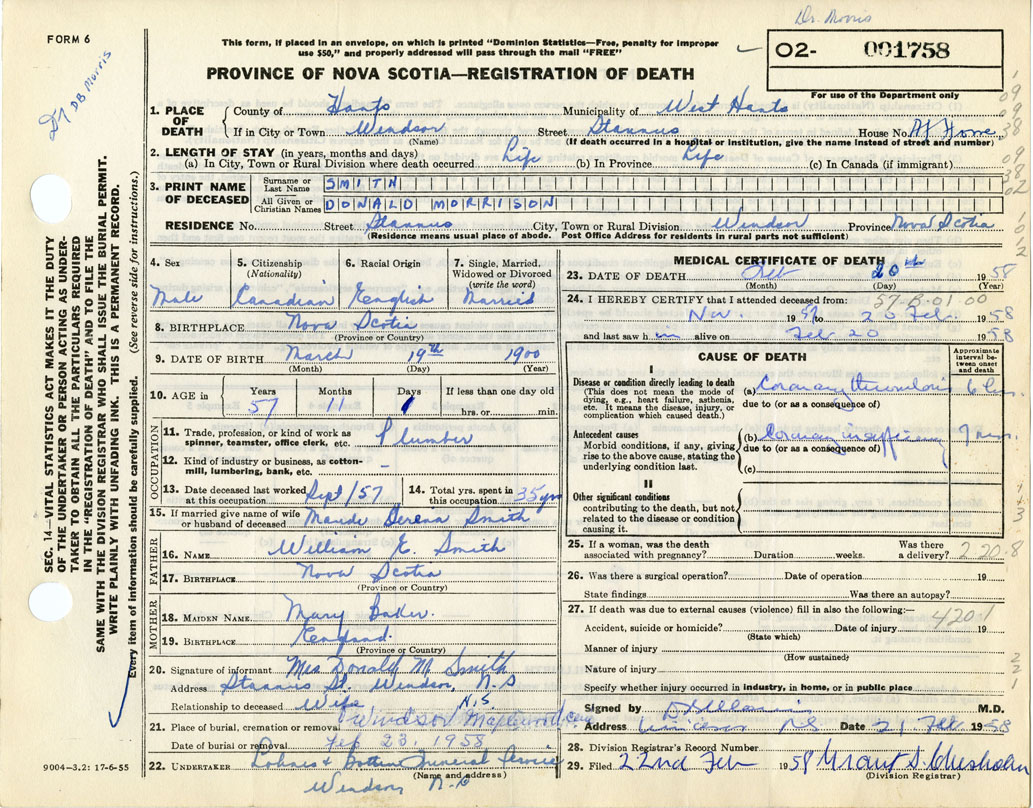 Dr. Morris
FORM 6
This form, if placed in an envelope, on which is printed "Dominion Statistics—Free, penalty for improper
use $50," and properly addressed will pass through the mail "FREE"
O2- 001758
For use of the Department only
PROVINCE OF NOVA SCOTIA—REGISTRATION OF DEATH
Dr DB Morris
SEC. 14—VITAL STATISTICS ACT MAKES IT THE DUTY
OF THE UNDERTAKER OR PERSON ACTING AS UNDER-
TAKER TO OBTAIN ALL THE PARTICULARS REQUIRED
IN THE "REGISTRATION OF DEATH" AND TO FILE THE
SAME WITH THE DIVISION REGISTRAR WHO SHALL ISSUE THE BURIAL PERMIT.
WRITE PLAINLY WITH UNFADING INK. THIS IS A PERMANENT RECORD.
Every item of information should be carefully supplied. (See reverse side for instructions.)
1. PLACE OF DEATH
County of Hants Municipality of West Hants
If in City or Town Windsor Street Stannus House No. At Home
(Name) (If death occurred in a hospital or institution, give the name instead of street and number)
2. LENGTH OF STAY (in years, months and days)
(a) In City, Town or Rural Division where death occurred Life (b) In Province Life (c) In Canada (if immigrant)
3. PRINT NAME OF DECEASED
Surname or Last Name SMITH
All Given or Christian Names DONALD MORRISON
RESIDENCE No. Street Stannus City, Town or Rural Division Windsor Province Nova Scotia
(Residence means usual place of abode. Post Office Address for residents in rural parts not sufficient)
4. Sex 5. Citizenship (Nationality) 6. Racial Origin 7. Single, Married, Widowed or Divorced (write the word)
Male Canadian English Married
8. BIRTHPLACE Nova Scotia
(Province or Country)
9. DATE OF BIRTH March 19th 1900
(Month) (Day) (Year)
10. AGE in Years Months Days If less than one day old
57 11 1 hrs. or min.
OCCUPATION
11. Trade, profession, or kind of work as
spinner, teamster, office clerk, etc. Plumber
12. Kind of industry or business, as cotton-
mill, lumbering, bank, etc. –
13. Date deceased last worked at this occupation Sept/57 14. Total yrs. spent in this occupation 35 yrs
15. If married give name of wife
or husband of deceased Maude Serena Smith
FATHER
16. NAME William E. Smith
17. BIRTHPLACE Nova Scotia
(Province or Country)
MOTHER
18. MAIDEN NAME Mary Baker.
19. BIRTHPLACE England.
(Province or Country)
20. Signature of informant Mrs Donald M. Smith
Address Stannus St. Windsor, N.S
Relationship to deceased Wife N.S
21. Place of burial, cremation or removal Windsor Maplewood Cem
Date of burial or removal Feb 23, 1958
22. UNDERTAKER Funeral Service
(Name and address)
Windsor N.S
9004-3.2: 17-6-55
MEDICAL CERTIFICATE OF DEATH
23. DATE OF DEATH Feb 20th 1958
(Month) (Day) (Year)
24. I HEREBY CERTIFY that I attended deceased from: 57-B-01 00
Nov. 1957 to 20 Feb. 1958
and last saw him alive on Feb 20 1958
CAUSE OF DEATH
Approximate interval between onset and death
I
Disease or condition directly leading to death
(This does not mean the mode of
dying, e.g., heart failure, asthenia,
etc. It means the disease, injury, or
complication which caused death.)
(a) Coronary thrombosis 6 hrs.
due to (or as a consequence of)
Antecedent causes
Morbid conditions, if any, giving
rise to the above cause, stating the
underlying condition last.
(b) Coronary insufficiency
due to (or as a consequence of)
(c)
II
Other significant conditions
contributing to the death, but not
related to the disease or condition
causing it.
25. If a woman, was the death associated with pregnancy? Duration weeks. Was there a delivery? 2 20.8
26. Was there a surgical operation? Date of operation 19
State findings Was there an autopsy?
27. If death was due to external causes (violence) fill in also the following:—
420.1
Accident, suicide or homicide? Date of injury 19
(State which)
Manner of injury
(How sustained)
Nature of injury
Specify whether injury occurred in industry, in home, or in public place
Signed by M.D.
Address Windsor NS Date 21 Feb 1958
28. Division Registrar's Record Number
29. Filed 22nd Feb 1958 Grant S. Chisholm
(Division Registrar)